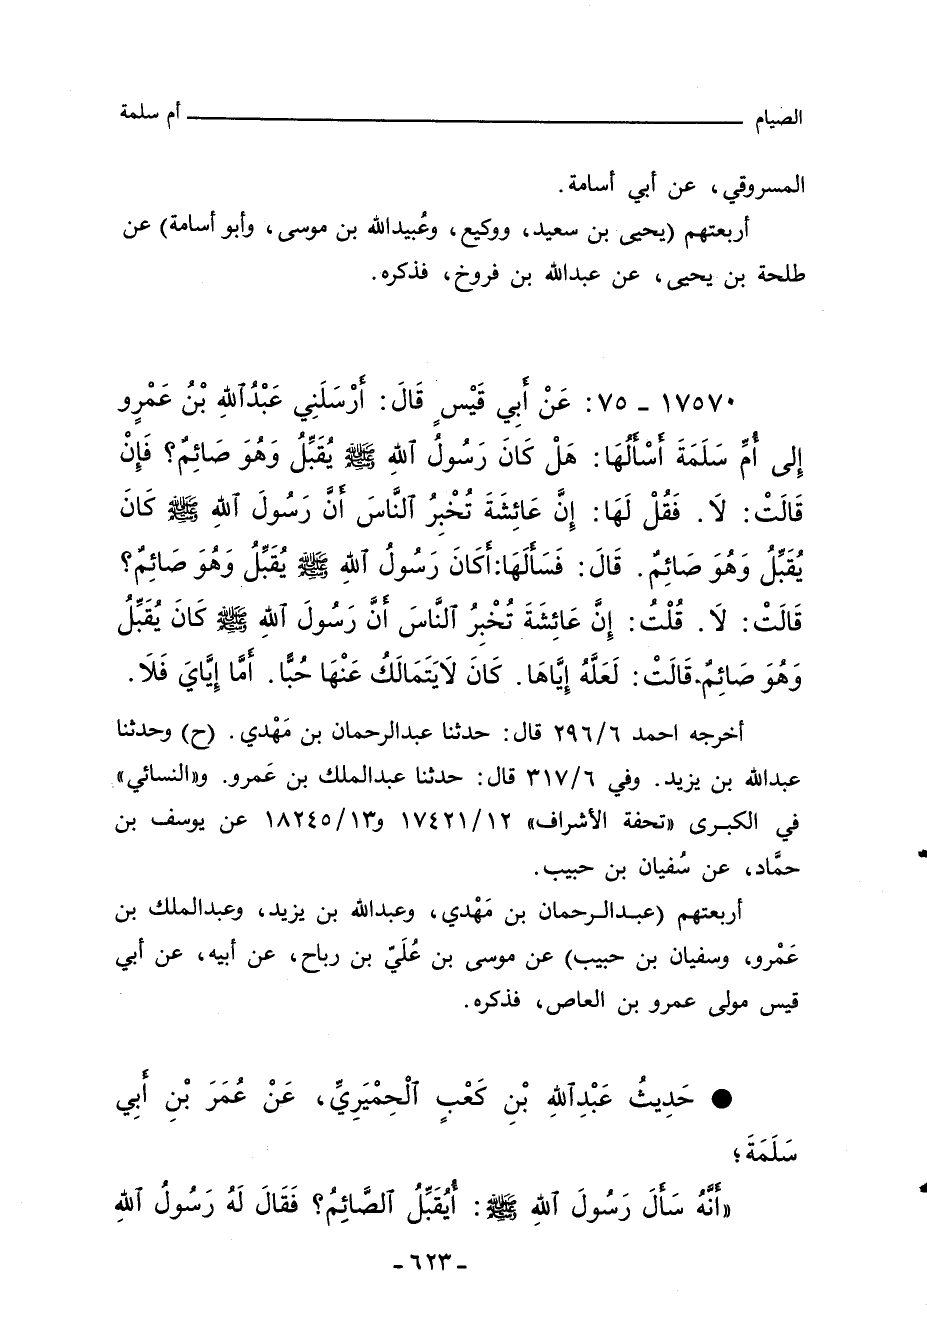 الصيام ـــــــــــــــــــــــــــــــ أم سلمة
المسروقي، عن أبي أسامة.
أربعتهم (يحيى بن سعيد، ووكيع، وعُبيدالله بن موسى، وأبو أسامة) عن
طلحة بن يحيى، عن عبدالله بن فروخ، فذكره.
١٧٥٧٠ ـ ٧٥: عَنْ أَبِي قَيْسٍ قَالَ: أَرْسَلَنِي عَبْدُاللهِ بْنُ عَمْرٍو
إِلى أُمِّ سَلَمَةَ أَسْأَلُهَا: هَلْ كَانَ رَسُولُ اللهِ ﷺ يُقَبِّلُ وَهُوَ صَائِمٌ؟ فَإِنْ
قَالَتْ: لَا. فَقُلْ لَهَا: إِنَّ عَائِشَةَ تُخْبِرُ النَّاسَ أَنَّ رَسُولَ اللهِ ﷺ كَانَ
يُقَبِّلُ وَهُوَ صَائِمٌ. قَالَ: فَسَأَلَهَا: أَكَانَ رَسُولُ اللهِ ﷺ يُقَبِّلُ وَهُوَ صَائِمٌ؟
قَالَتْ: لَا. قُلْتُ: إِنَّ عَائِشَةَ تُخْبِرُ النَّاسَ أَنَّ رَسُولَ اللهِ ﷺ كَانَ يُقَبِّلُ
وَهُوَ صَائِمٌ. قَالَتْ: لَعَلَّهُ إِيَّاهَا. كَانَ لَايَتَمَالَكُ عَنْهَا حُبًّا. أَمَّا إِيَّايَ فَلَا.
أخرجه احمد ٢٩٦/٦ قال: حدثنا عبدالرحمان بن مَهْدي. (ح) وحدثنا
عبدالله بن يزيد. وفي ٣١٧/٦ قال: حدثنا عبدالملك بن عَمرو. و«النسائي»
في الكبرى «تحفة الأشراف» ١٧٤٢١/١٢ و١٨٢٤٥/١٣ عن يوسف بن
حمَّاد، عن سُفيان بن حبيب.
أربعتهم (عبدالرحمان بن مَهْدي، وعبدالله بن يزيد، وعبدالملك بن
عَمْرو، وسفيان بن حبيب) عن موسى بن عُلَيّ بن رباح، عن أبيه، عن أبي
قيس مولى عمرو بن العاص، فذكره.
● حَدِيثُ عَبْدِاللهِ بْنِ كَعْبٍ الْحِمْيَرِيِّ، عَنْ عُمَرَ بْنِ أَبِي
سَلَمَةَ؛
«أَنَّهُ سَأَلَ رَسُولَ اللهِ ﷺ: أَيُقَبِّلُ الصَّائِمُ؟ فَقَالَ لَهُ رَسُولُ اللهِ
- ٦٢٣ -